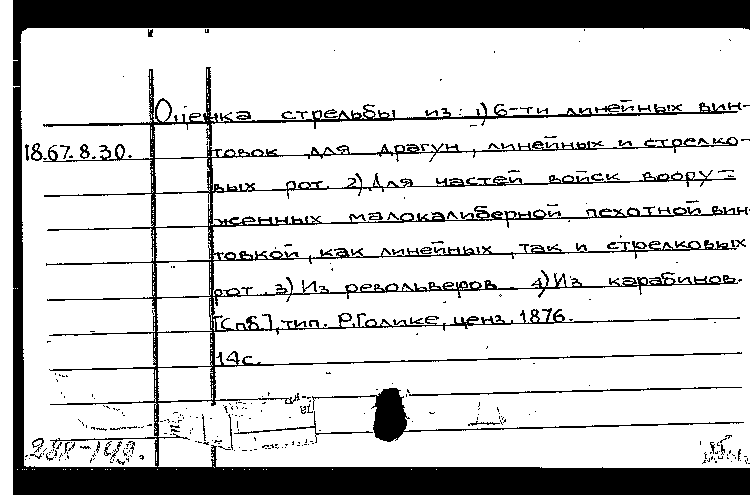 Оценка стрельбы из: 1) 6-ти линейных вин-
18.67.8.30. товок для драгун, линейных и стрелко-
вых рот. 2) Для частей войск воору-
женных малокалиберной пехотной вин-
товкой, как линейных, так и стрелковых
рот. 3) Из револьверов. 4) Из карабинов.
[Спб.], тип. Р.Голике, ценз. 1876.
14с.